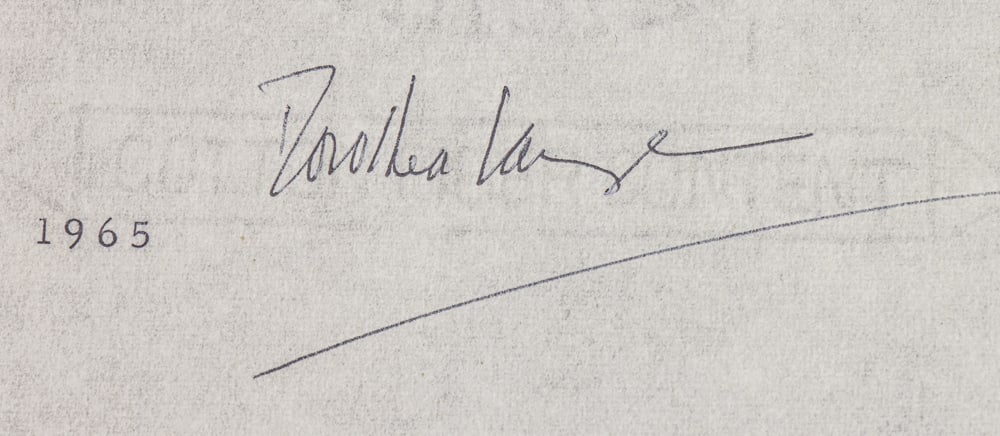 Dorothea Lange
1965